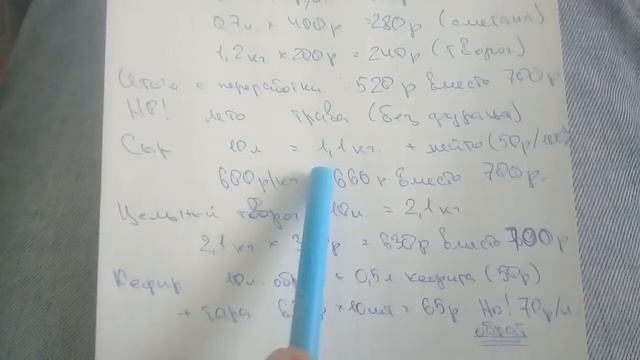 0.7л × 400р = 280р (сметана)
1,2 кг × 200р = 240р (творог)
Итого с переработки : 520р вместо 700р
НО! лето трава (без фуража)
Сыр 10л = 1,1 кг. +
600р/кг 660р вместо 700р.
Цельный творог 10л = 2,1 кг
2,1 кг × 3 р = 630р вместо 700р
Кефир 10л = 0,5л кефира (50р)
+ тара = 65р Но! 70р/л.
обрат